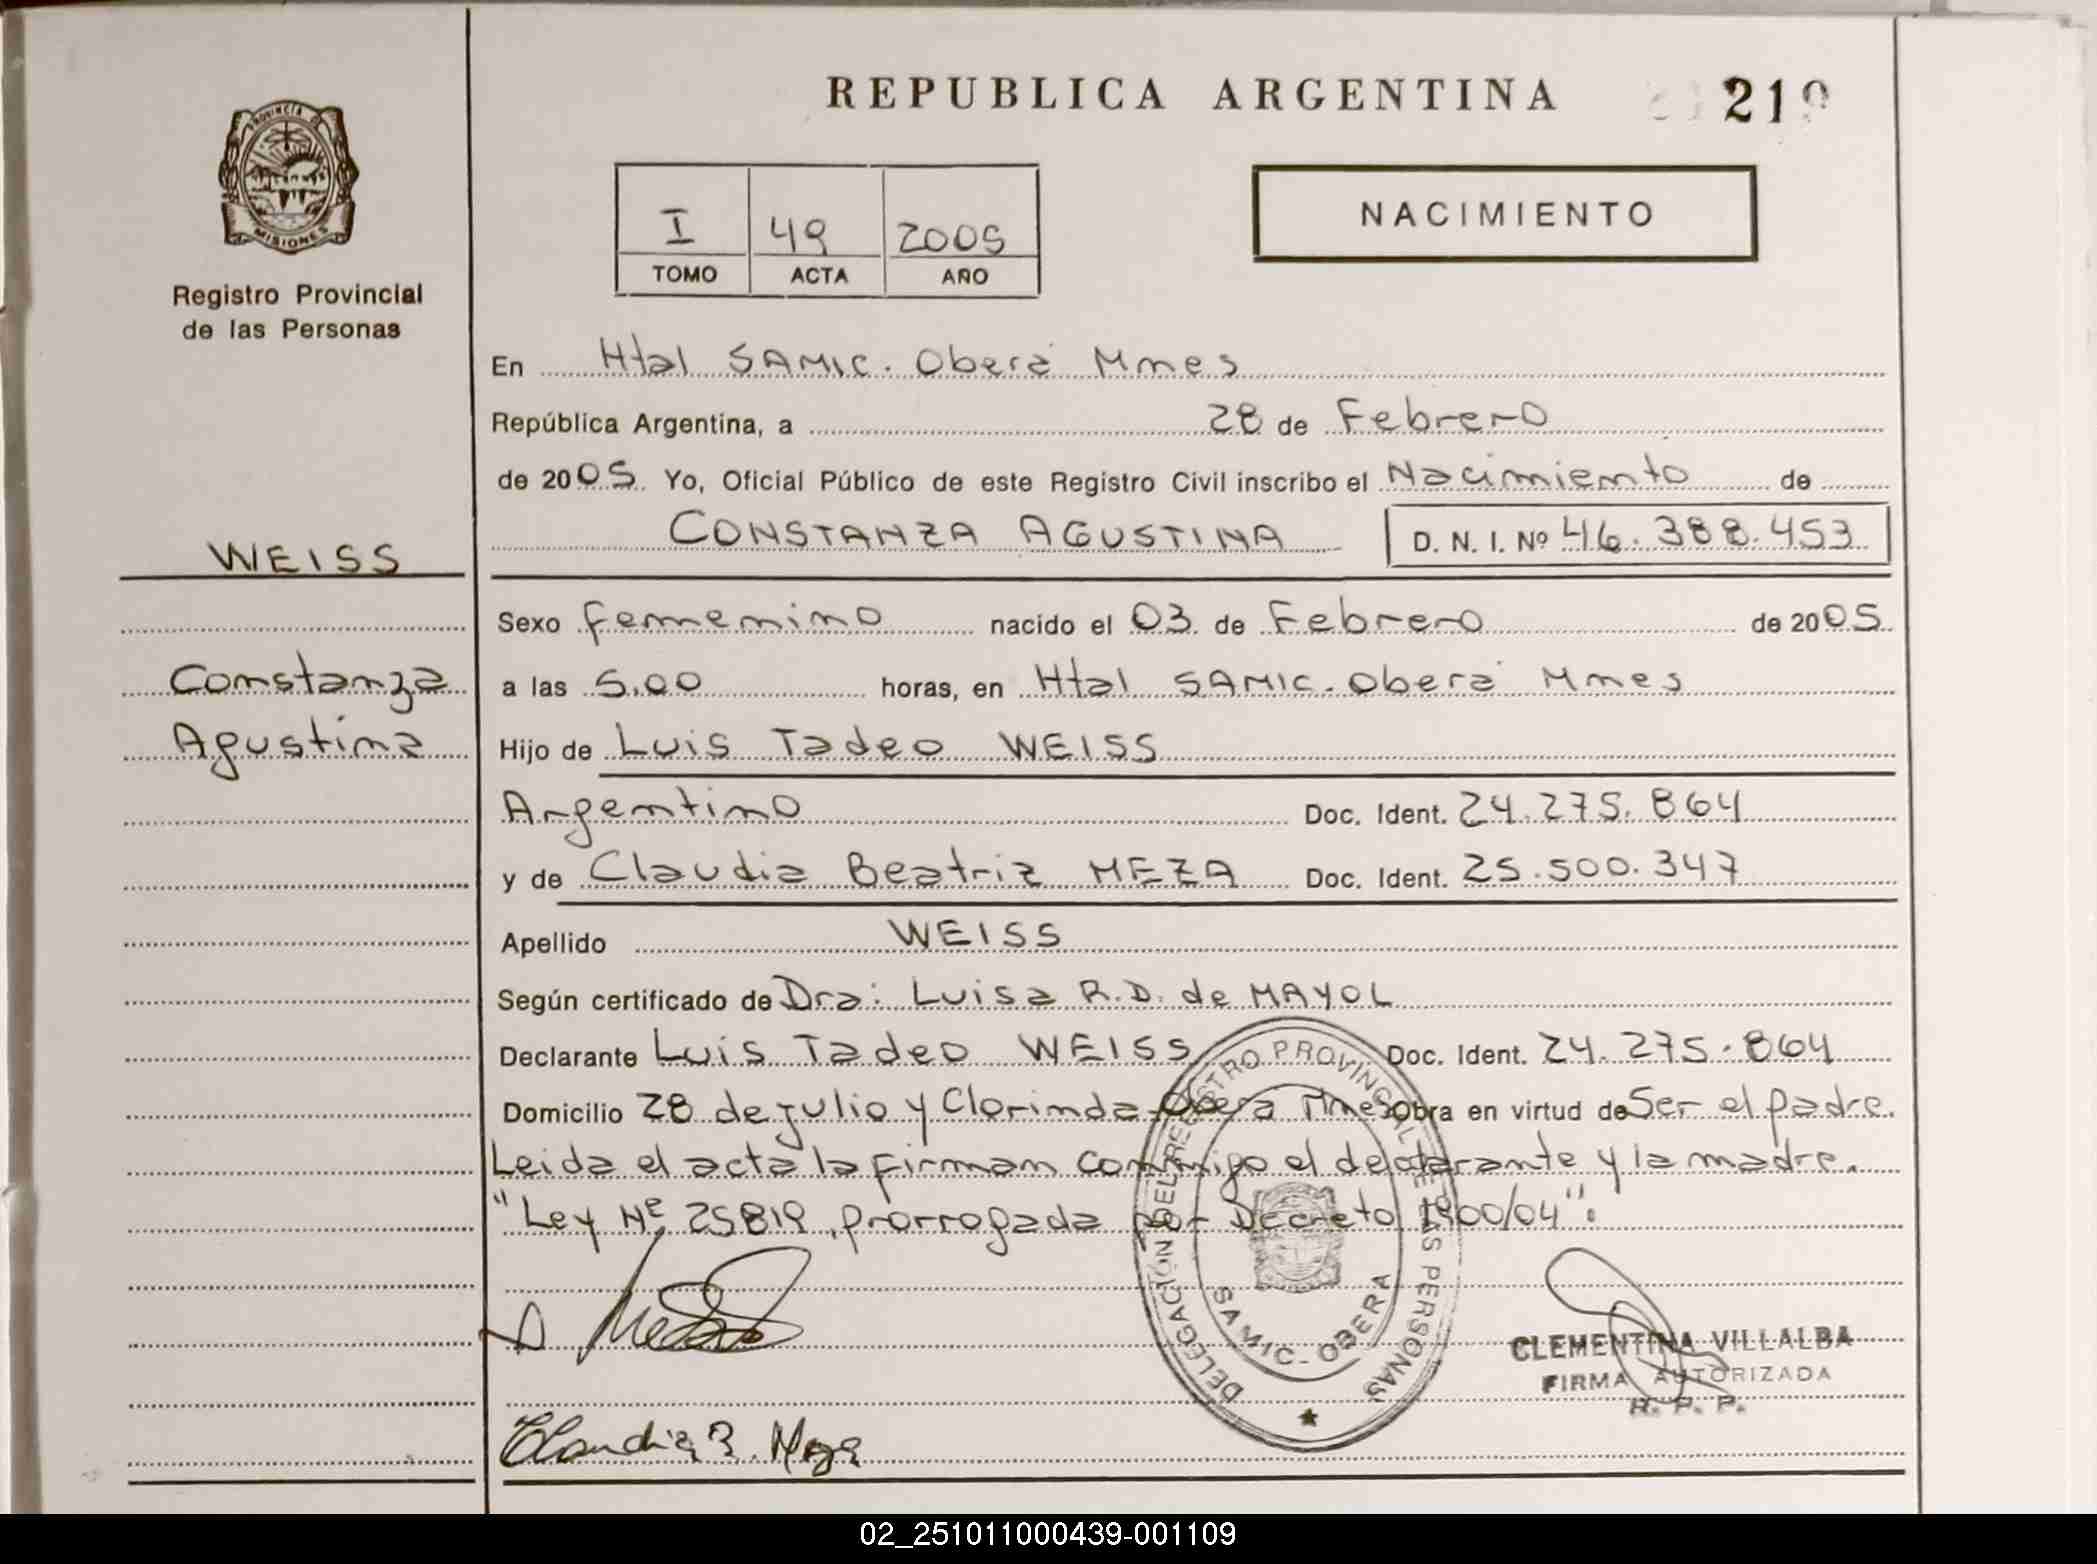 REPUBLICA ARGENTINA
219
PROVINCIA D
MISIONES
Registro Provincial
de las Personas
I 49 2005
TOMO ACTA AÑO
NACIMIENTO
En Htal SAMIC. Oberá Mnes
República Argentina, a 28 de Febrero
de 2005. Yo, Oficial Público de este Registro Civil inscribo el Nacimiento de
CONSTANZA AGUSTINA D. N. I. Nº 46.388.453
WEISS
Constanza
Agustina
Sexo femenino nacido el 03 de Febrero de 2005
a las 5,00 horas, en Htal SAMIC. Oberá Mnes
Hijo de Luis Tadeo WEISS
Argentino Doc. Ident. 24.275.864
y de Claudia Beatriz MEZA Doc. Ident. 25.500.347
Apellido WEISS
Según certificado de Dra: Luisa R.D. de MAYOL
Declarante Luis Tadeo WEISS Doc. Ident. 24.275.864
Domicilio 28 de julio y Clorinda Oberá Mnes Obra en virtud de Ser el padre.
Leida el acta la firman conmigo el declarante y la madre.
"Ley Nº 25819, prorrogada por Decreto 1900/04".
DELEGACIÓN DEL REGISTRO PROVINCIAL DE LAS PERSONAS
SAMIC - OBERA
CLEMENTINA VILLALBA
FIRMA AUTORIZADA
R. P. P.
Claudia B. Meza
02_251011000439-001109